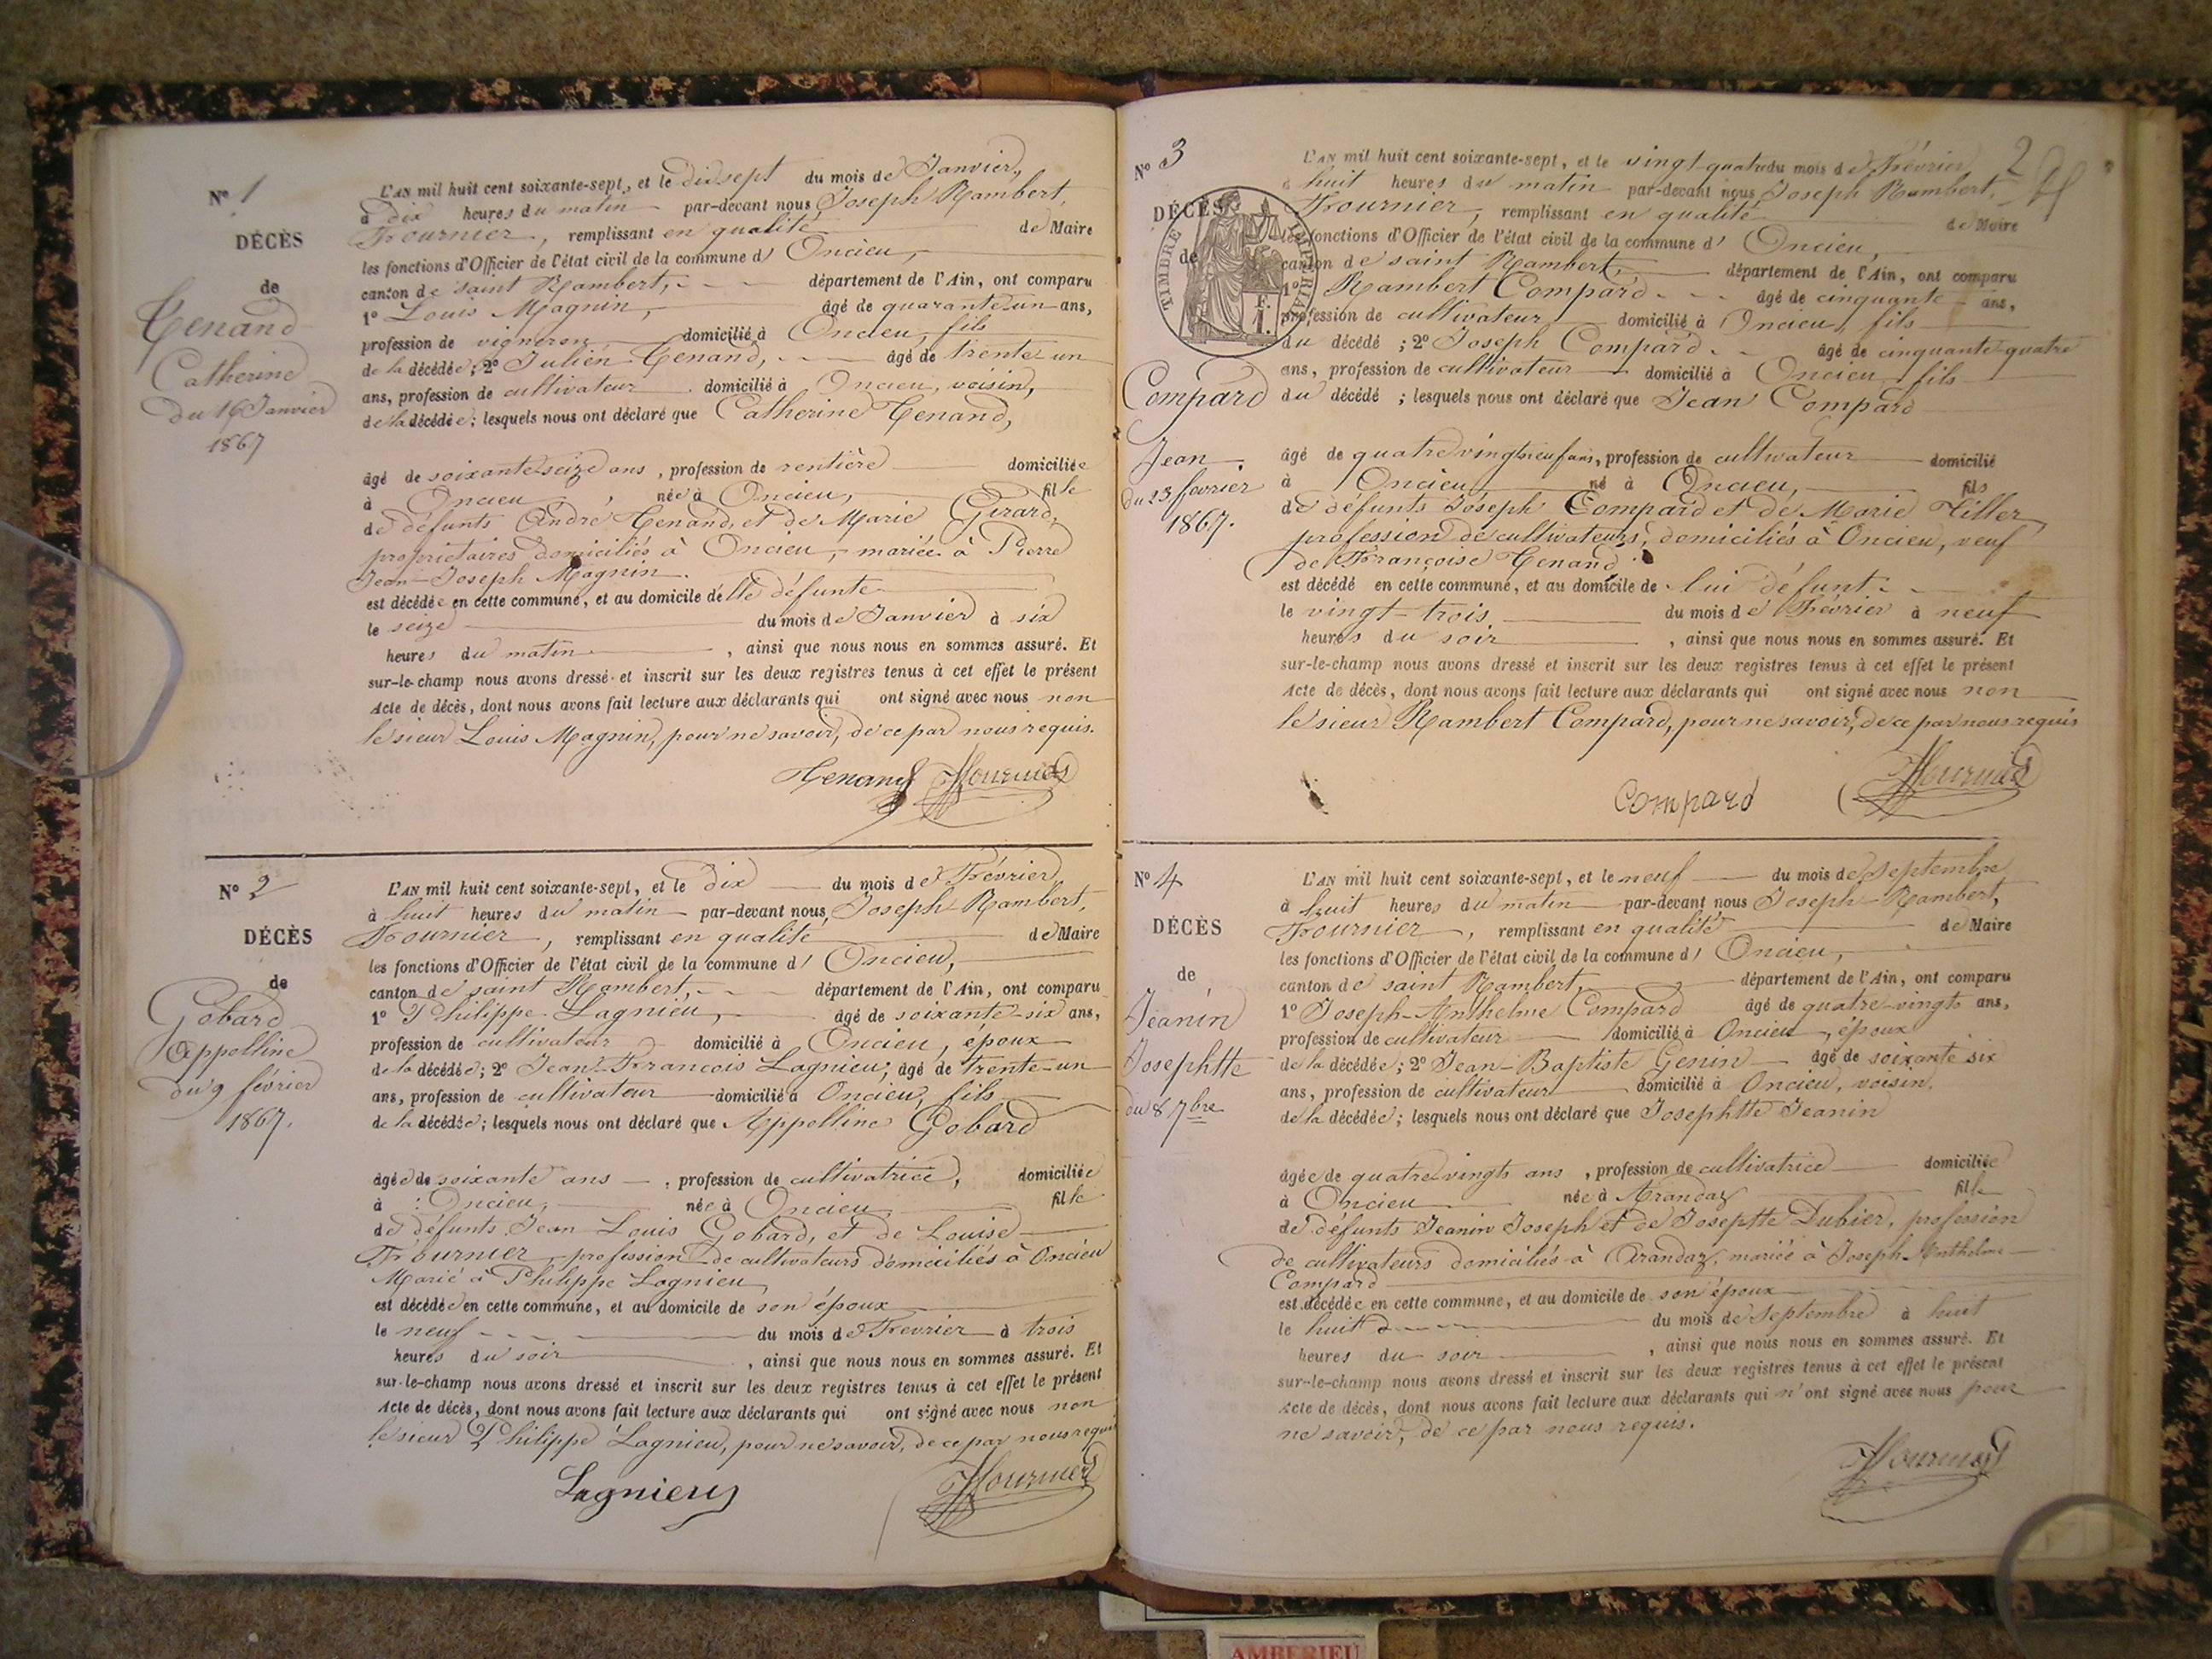 N° 1
DÉCÈS
de
Tenand
Catherine
du 16 Janvier
1867
L'AN mil huit cent soixante-sept, et le dix sept du mois de Janvier,
à dix heures du matin par-devant nous Joseph Rambert,
Fournier, remplissant en qualité de Maire
les fonctions d'Officier de l'état civil de la commune d' Oncieu,
canton de saint Rambert, département de l'Ain, ont comparu
1° Louis Magnin, âgé de quarante un ans,
profession de vigneron domicilié à Oncieu, fils
de la décédée; 2° Julien Tenand, âgé de trente un
ans, profession de cultivateur domicilié à Oncieu, voisin,
de la décédée; lesquels nous ont déclaré que Catherine Tenand,
âgé de soixante-seize ans, profession de rentière domiciliée
à Oncieu, née à Oncieu, fille
de défunts André Tenand, et de Marie Girard,
propriétaires domiciliés à Oncieu, mariée à Pierre
Jean-Joseph Magnin.
est décédée en cette commune, et au domicile d'elle défunte
le seize du mois de Janvier à six
heures du matin, ainsi que nous nous en sommes assuré. Et
sur-le-champ nous avons dressé et inscrit sur les deux registres tenus à cet effet le présent
Acte de décès, dont nous avons fait lecture aux déclarants qui ont signé avec nous non
le sieur Louis Magnin, pour ne savoir, de ce par nous requis.
Tenand Fournier
N° 2
DÉCÈS
de
Gobard
Appelline
du 9 février
1867.
L'AN mil huit cent soixante-sept, et le dix du mois de Février
à huit heures du matin par-devant nous, Joseph-Rambert,
Fournier, remplissant en qualité de Maire
les fonctions d'Officier de l'état civil de la commune d' Oncieu,
canton de saint Rambert, département de l'Ain, ont comparu
1° Philippe Lagnieu, âgé de soixante-six ans,
profession de cultivateur domicilié à Oncieu, époux
de la décédée; 2° Jean-François Lagnieu, âgé de trente-un
ans, profession de cultivateur domicilié à Oncieu, fils
de la décédée; lesquels nous ont déclaré que Appelline Gobard
âgée de soixante ans, profession de cultivatrice, domiciliée
à Oncieu, née à Oncieu fille
de défunts Jean Louis Gobard, et de Louise
Fournier, profession de cultivateurs domiciliés à Oncieu
Marié à Philippe Lagnieu
est décédée en cette commune, et au domicile de son époux
le neuf du mois de Fevrier à trois
heures du soir, ainsi que nous nous en sommes assuré. Et
sur-le-champ nous avons dressé et inscrit sur les deux registres tenus à cet effet le présent
Acte de décès, dont nous avons fait lecture aux déclarants qui ont signé avec nous non
le sieur Philippe Lagnieu, pour ne savoir, de ce par nous requis
Lagnieu Fournier
2
N° 3
DÉCÈS
de
TIMBRE IMPERIAL
Compard
Jean.
du 23 fevrier
1867.
L'AN mil huit cent soixante-sept, et le vingt-quatre du mois de Février
à huit heures du matin par-devant nous Joseph Rambert,
Fournier, remplissant en qualité de Maire
les fonctions d'Officier de l'état civil de la commune d' Oncieu,
canton de saint Rambert, département de l'Ain, ont comparu
1° Rambert Compard âgé de cinquante ans,
profession de cultivateur domicilié à Oncieu, fils
du décédé; 2° Joseph Compard âgé de cinquante quatre
ans, profession de cultivateur domicilié à Oncieu fils
du décédé; lesquels nous ont déclaré que Jean Compard
âgé de quatre vingt neuf ans, profession de cultivateur domicilié
à Oncieu né à Oncieu, fils
de défunts Joseph Compard et de Marie Tiller
profession de cultivateurs, domiciliés à Oncieu, veuf
de Françoise Tenand
est décédé en cette commune, et au domicile de lui défunt.
le vingt-trois du mois de Février à neuf
heures du soir, ainsi que nous nous en sommes assuré. Et
sur-le-champ nous avons dressé et inscrit sur les deux registres tenus à cet effet le présent
Acte de décès, dont nous avons fait lecture aux déclarants qui ont signé avec nous non
le sieur Rambert Compard, pour ne savoir, de ce par nous requis
Compard Fournier
N° 4
DÉCÈS
de
Jeanin
Josephtte
du 8 7bre
L'AN mil huit cent soixante-sept, et le neuf du mois de Septembre
à huit heures du matin par-devant nous Joseph-Rambert,
Fournier, remplissant en qualité de Maire
les fonctions d'Officier de l'état civil de la commune d' Oncieu,
canton de saint Rambert, département de l'Ain, ont comparu
1° Joseph-Anthelme Compard âgé de quatre-vingts ans,
profession de cultivateur domicilié à Oncieu, époux
de la décédée; 2° Jean-Baptiste Genin âgé de soixante six
ans, profession de cultivateur domicilié à Oncieu, voisin.
de la décédée; lesquels nous ont déclaré que Josephtte Jeanin
âgée de quatre vingts ans, profession de cultivatrice domiciliée
à Oncieu née à Arandaz fille
de défunts Jeanin Joseph et de Joseptte Dubier, profession
de cultivateurs domiciliés à Arandaz, mariée à Joseph-Anthelme
Compard
est décédée en cette commune, et au domicile de son époux
le huit du mois de Septembre à huit
heures du soir, ainsi que nous nous en sommes assuré. Et
sur-le-champ nous avons dressé et inscrit sur les deux registres tenus à cet effet le présent
Acte de décès, dont nous avons fait lecture aux déclarants qui n'ont signé avec nous pour
ne savoir, de ce par nous requis.
Fournier
AMBERIEU